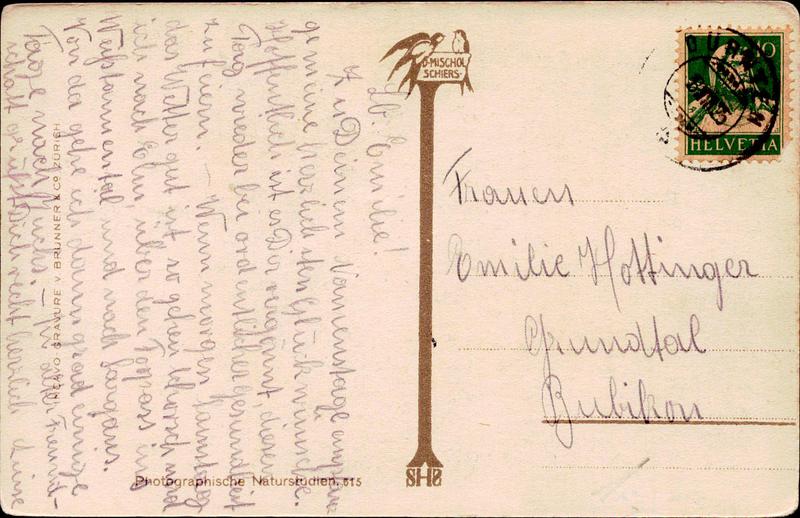 Lb. Emilie!
Zu Deinem Namenstage empfan-
ge meine herzlichsten Glückwünsche.
Hoffentlich ist es Dir vergönnt, diesen
Tag wieder bei ordentlicher Gesundheit
zu feiern. – Wenn morgen Samstag
das Wetter gut ist so gehen Schorsch und
ich nach Elm, über den Foopass ins
Weißtannental und nach Sargans.
Von da gehe ich dann grad einige
Tage nach Fluchs. – In alter Freund-
schaft grüßt Dich recht herzlich Deine
D. MISCHOL
SCHIERS
SHS
10
HELVETIA
Frauen
Emilie Hottinger
Grundtal
Bubikon
NEAVO GRAVURE BRUNNER & CO ZÜRICH
Photographische Naturstudien. 615